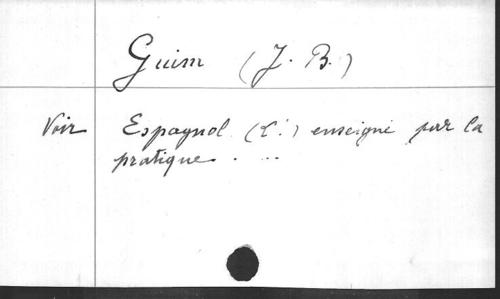 Guim (J. B.)
Voir Espagnol (L') enseigné par la
pratique. ...